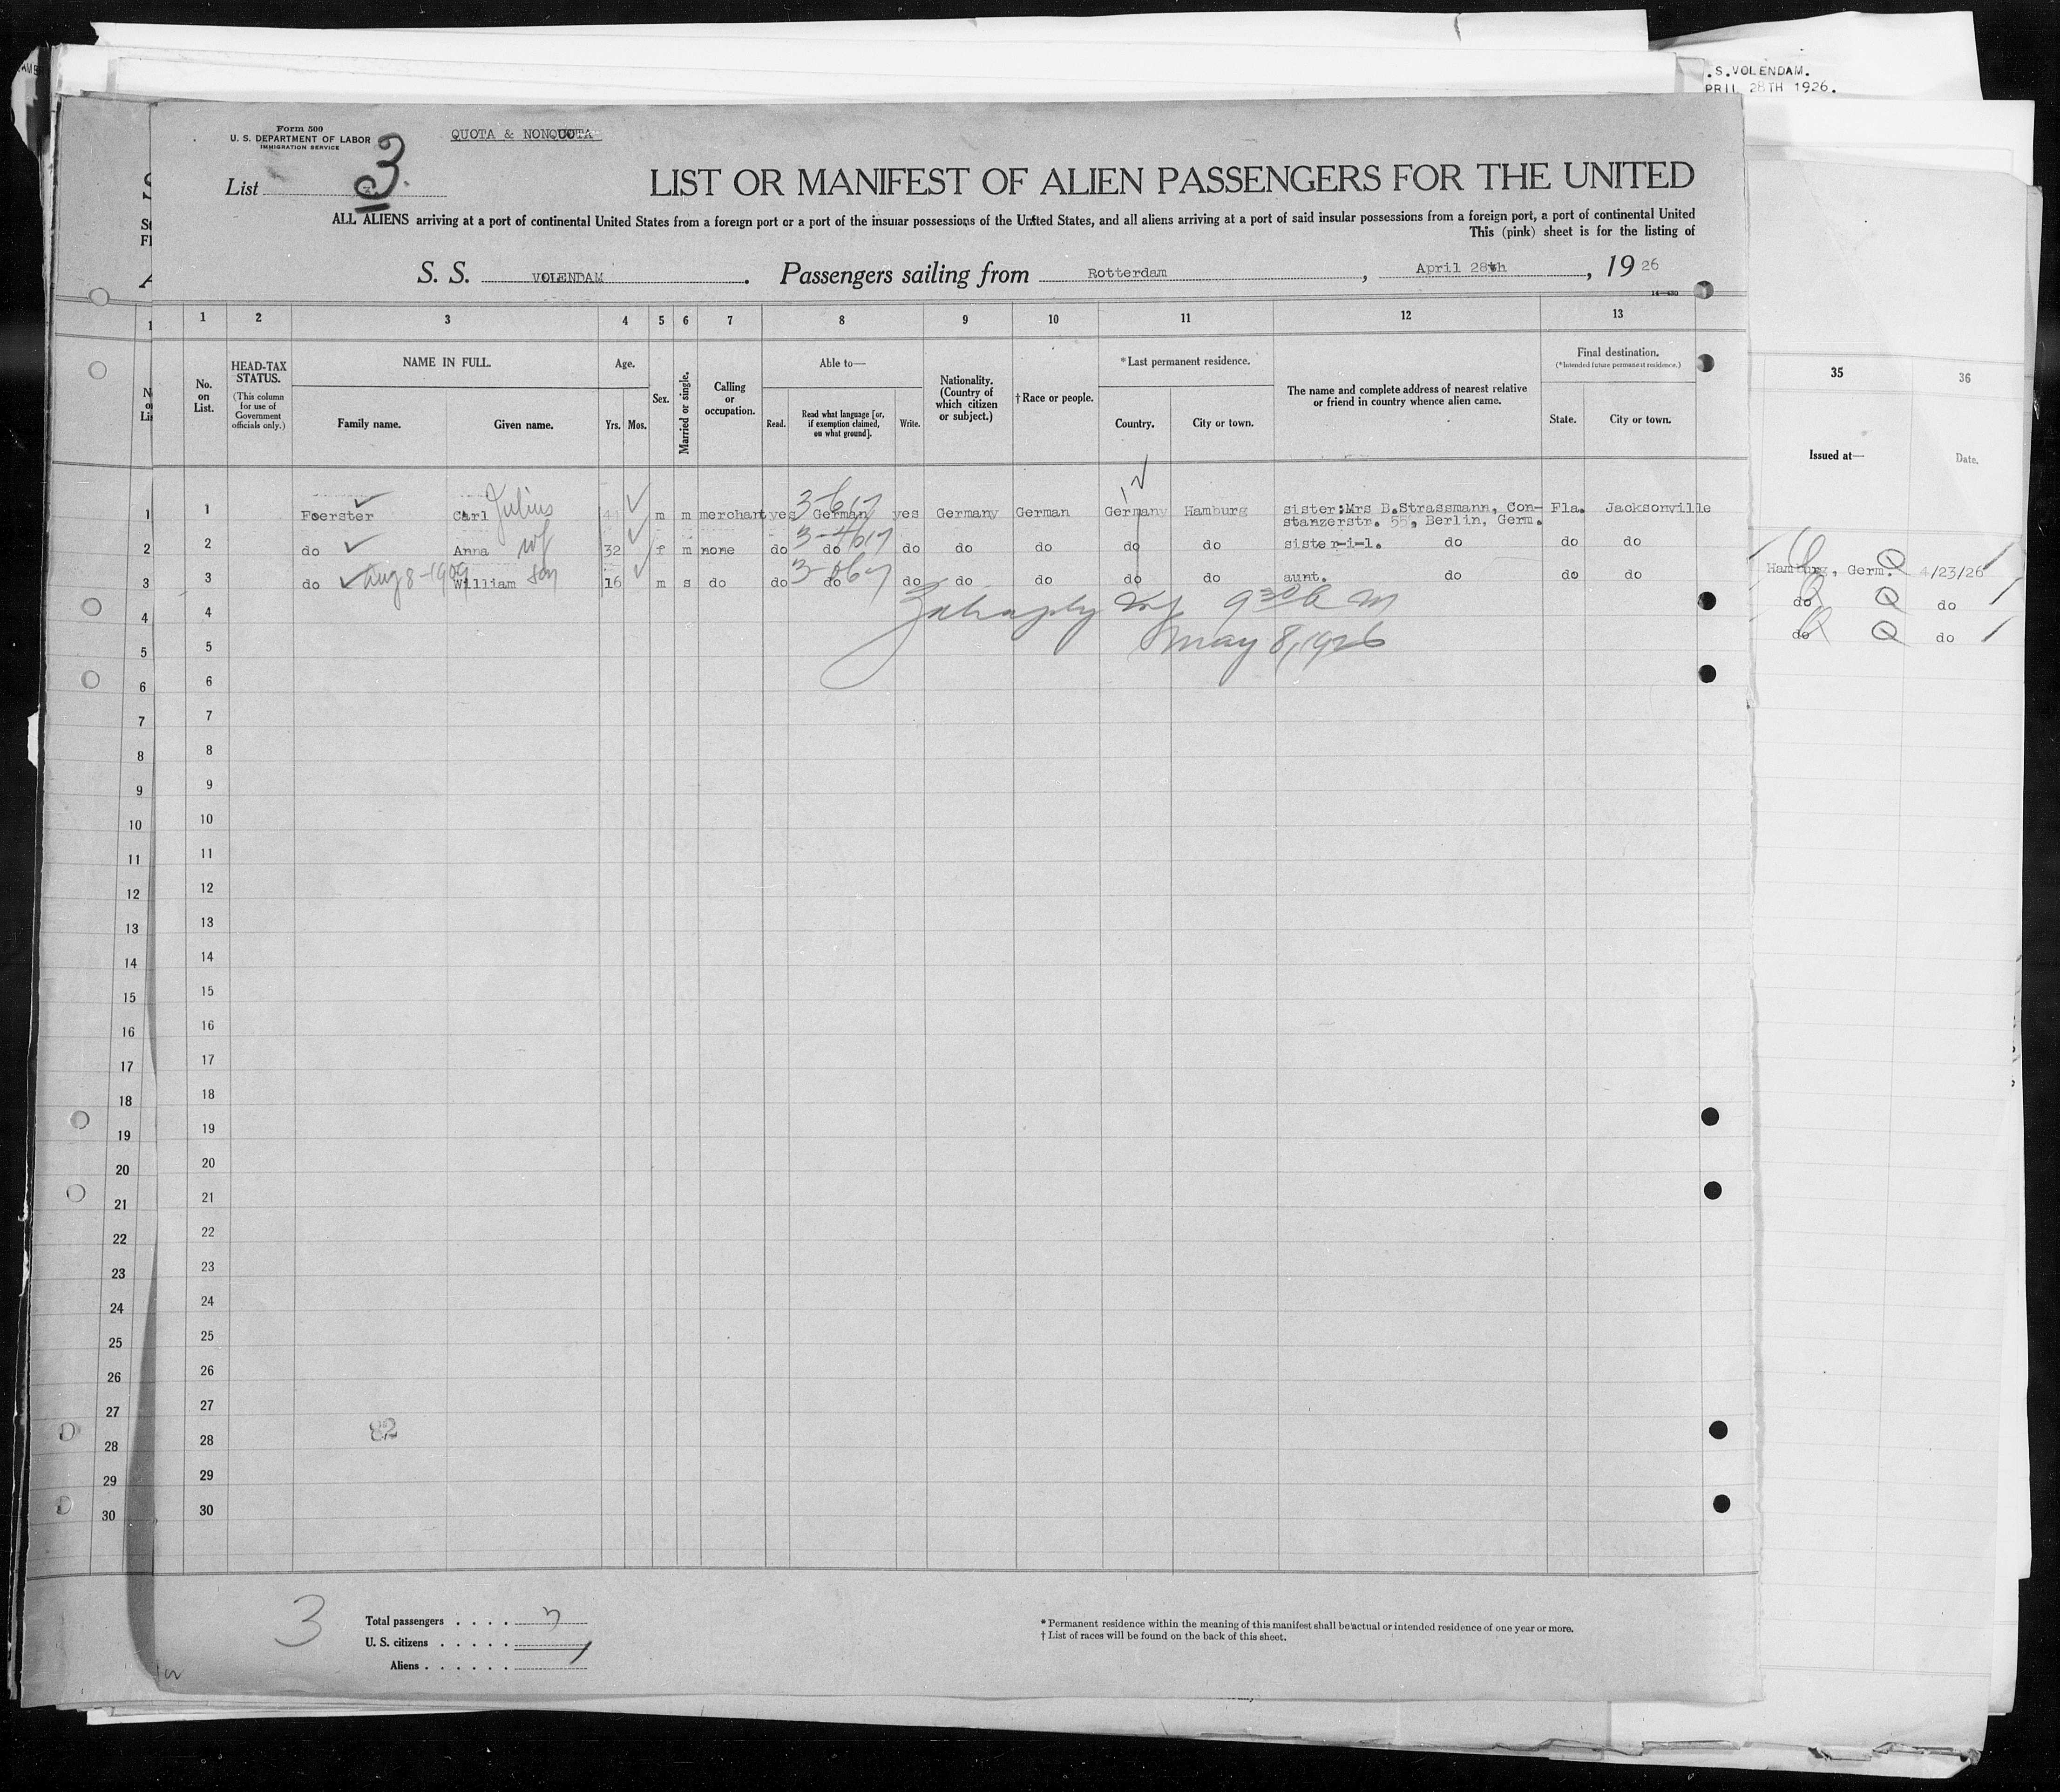 S.S.VOLENDAM.
PRIL 28TH 1926.
Form 500
U. S. DEPARTMENT OF LABOR
IMMIGRATION SERVICE
QUOTA & NONQUOTA
List 3.
LIST OR MANIFEST OF ALIEN PASSENGERS FOR THE UNITED
ALL ALIENS arriving at a port of continental United States from a foreign port or a port of the insular possessions of the United States, and all aliens arriving at a port of said insular possessions from a foreign port, a port of continental United
This (pink) sheet is for the listing of
S. S. VOLENDAM. Passengers sailing from Rotterdam, April 28th, 1926
1 2 3 4 5 6 7 8 9 10 11 12 13
No. on List.
HEAD-TAX STATUS.
(This column for use of Government officials only.)
NAME IN FULL.
Family name. Given name.
Age.
Yrs. Mos.
Sex.
Married or single.
Calling or occupation.
Able to—
Read. Read what language [or, if exemption claimed, on what ground]. Write.
Nationality. (Country of which citizen or subject.)
† Race or people.
*Last permanent residence.
Country. City or town.
The name and complete address of nearest relative or friend in country whence alien came.
Final destination.
(*Intended future permanent residence.)
State. City or town.
35 36
Issued at— Date.
1 1 Foerster Carl Julius m m merchant yes German yes Germany German Germany Hamburg sister:Mrs B.Strassmann, Con- Fla. Jacksonville
stanzerstr. 55, Berlin, Germ.
2 2 do Anna wf 32 f m none do do do do do do do sister-i-l. do do do
3 3 do Aug 8-1909 William son 16 m s do do do do do do do do aunt. do do do
Hamburg, Germ. Q 4/23/26
do Q do
do Q do
9 30 A M
May 8, 1926
4 4
5 5
6 6
7 7
8 8
9 9
10 10
11 11
12 12
13 13
14 14
15 15
16 16
17 17
18 18
19 19
20 20
21 21
22 22
23 23
24 24
25 25
26 26
27 27
82
28 28
29 29
30 30
3
Total passengers . . . . 3
U. S. citizens . . . . .
Aliens . . . . . .
* Permanent residence within the meaning of this manifest shall be actual or intended residence of one year or more.
† List of races will be found on the back of this sheet.